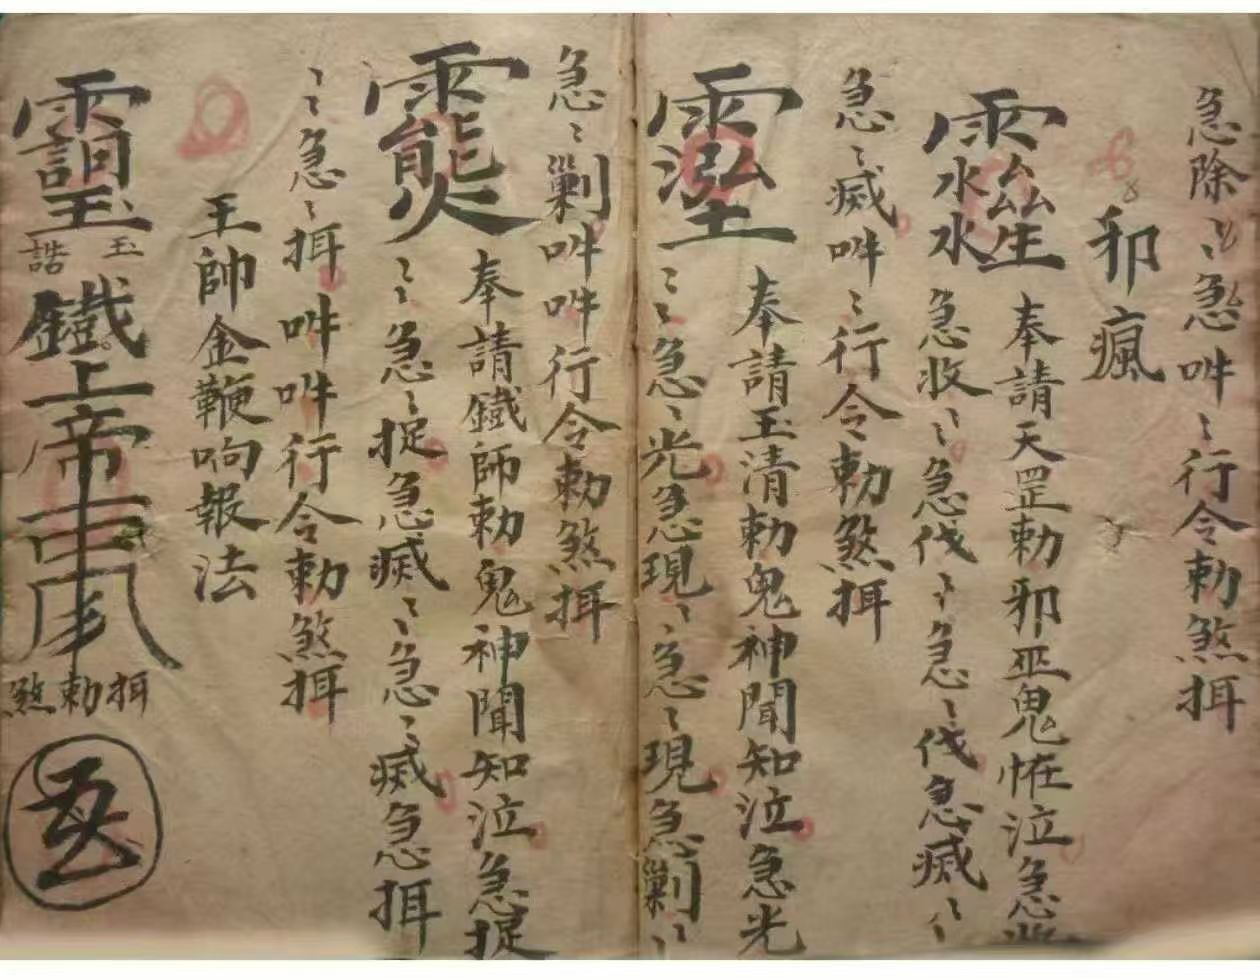 急除〻〻急吽〻行令勅煞挕
邪瘋
奉請天罡勅邪巫鬼恠泣急收
急收〻急伐〻急〻伐急滅〻
急〻滅吽〻行令勅煞挕
奉請玉清勅鬼神聞知泣急光
〻〻急〻光急現〻急〻現急剿〻
急〻剿吽吽行令勅煞挕
奉請鐵師勅鬼神聞知泣急捉
〻〻急〻捉急滅〻〻急〻滅急挕
〻〻急〻挕吽吽行令勅煞挕
王帥金鞭响報法
玉誥
鐵上帝
挕勅煞